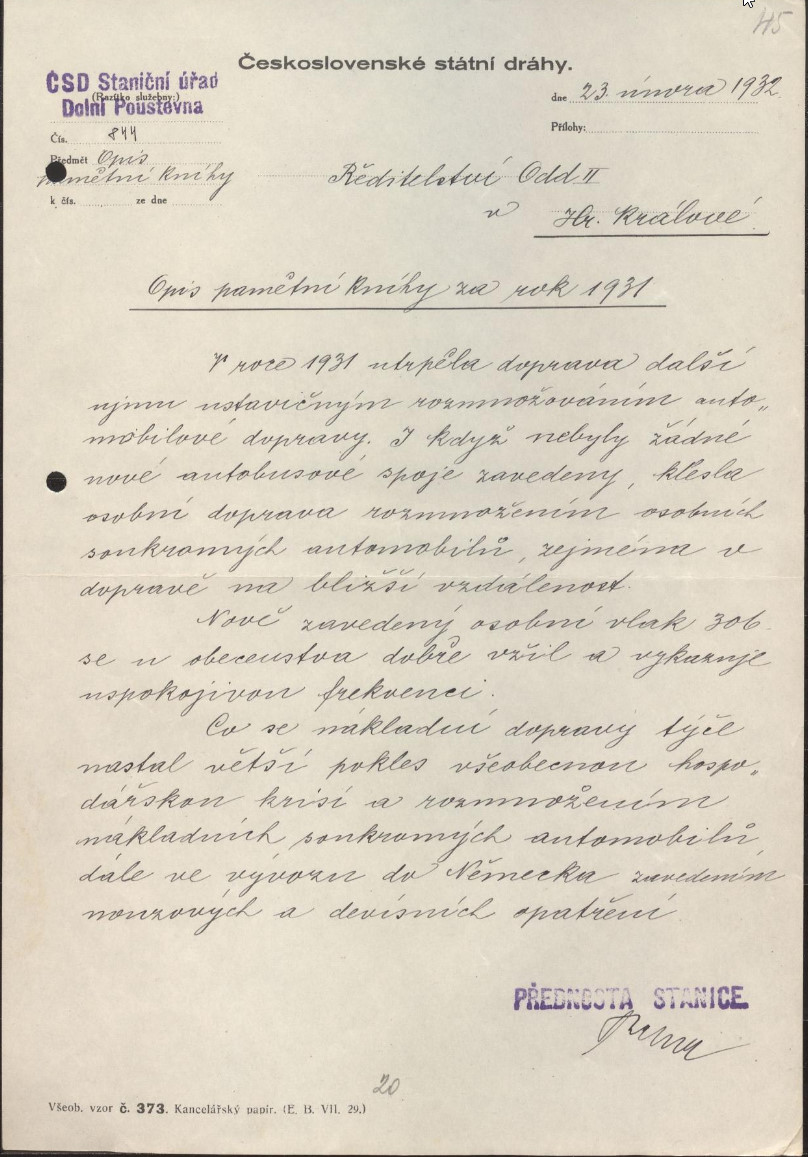 45
Československé státní dráhy.
ČSD Staniční úřad
(Razítko služebny:)
Dolní Poustevna
dne 23. února 1932.
Přílohy:
Čís. 844
Předmět Opis
pamětní knihy
k čís. ze dne
Ředitelství Odd. II
v Hr. Králové.
Opis pamětní knihy za rok 1931
V roce 1931 utrpěla doprava další
ujmu ustavičným rozmnožováním auto„
mobilové dopravy. I když nebyly žádné
nové autobusové spoje zavedeny, klesla
osobní doprava rozmnožením osobních
soukromých automobilů, zejména v
dopravě na bližší vzdálenost.
Nově zavedený osobní vlak 306
se u obecenstva dobře vžil a vykazuje
uspokojivou frekvenci.
Co se nákladní dopravy týče
nastal větší pokles všeobecnou hospo„
dářskou krisí a rozmnožením
nákladních soukromých automobilů,
dále ve vývozu do Německa zavedením
nouzových a devisních opatření.
PŘEDNOSTA STANICE.
20
Všeob. vzor č. 373. Kancelářský papír. (E. B. VII. 29.)